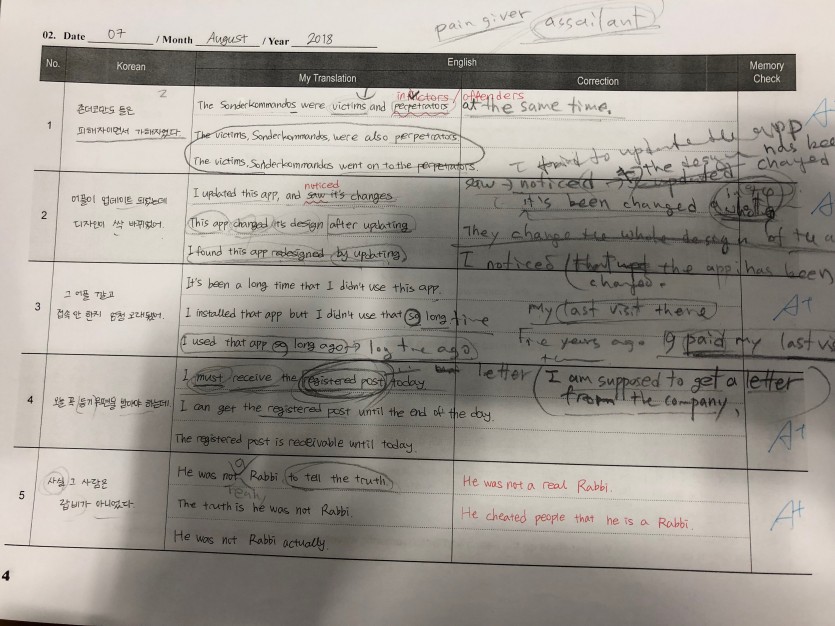 pain giver assailant
02. Date 07 / Month August / Year 2018
No. Korean English Memory Check
My Translation Correction
inflictors / offenders
1
존더코만도 들은
피해자이면서 가해자였다.
The Sonderkommandos were victims and perpetrators at the same time.
The victims, Sonderkommandos, were also perpetrators.
The victims, Sonderkommandos went on to the perpetrators.
A
I tried to update the app
the design has been changed
2
어플이 업데이트 되었는데
디자인이 싹 바뀌었어.
noticed
I updated this app, and saw it's changes.
saw → noticed → updated
it's been changed
This app changed its design after updating
They change the whole design of the a
I found this app redesigned by updating.
I noticed that the app has been
changed.
A
3
그 어플 깔고
접속 안 한지 엄청 오래됐어.
It's been a long time that I didn't use this app.
I installed that app but I didn't use that so long time
my last visit there
I used that app so long ago → long time ago
Five years ago I paid my last vis
A+
4
오늘 꼭 등기우편을 받아야 하는데.
I must receive the registered post today
letter
I am supposed to get a letter
from the company,
I can get the registered post until the end of the day.
The registered post is receivable until today.
A+
5
사실 그 사람은
랍비가 아니었다.
He was not a Rabbi, to tell the truth.
He was not a real Rabbi.
The truth is he was not Rabbi.
He cheated people that he is a Rabbi.
He was not Rabbi actually.
A+
4